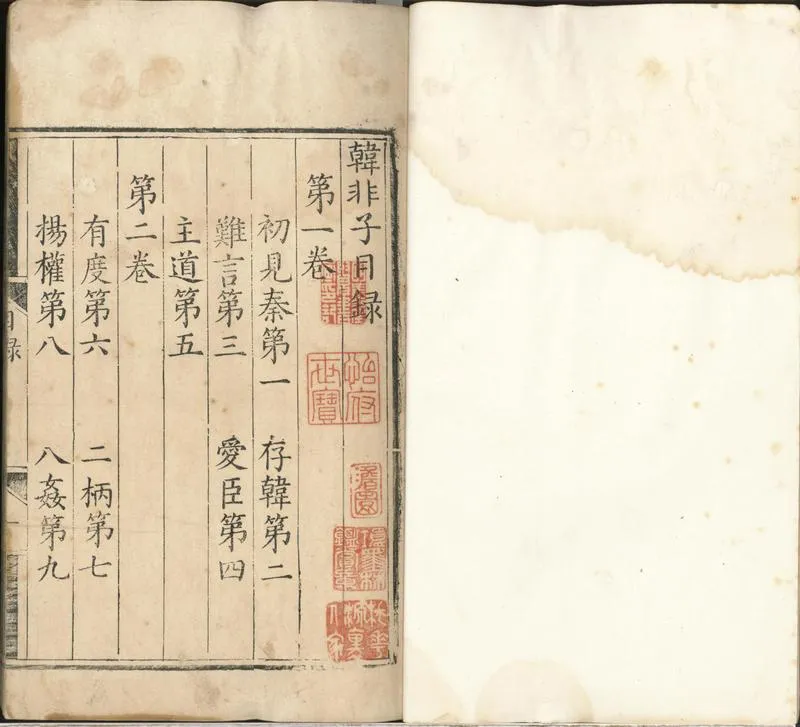 韓非子目録
第一卷
初見秦第一 存韓第二
難言第三 愛臣第四
主道第五
第二卷
有度第六 二柄第七
揚權第八 八姦第九
目録
一
怡府世寶